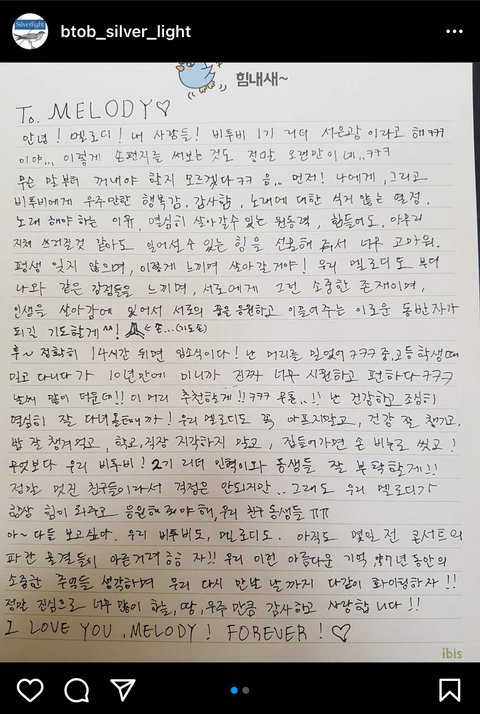 Silverlight
btob_silver_light
힘내새~
To. MELODY♡
안녕! 멜로디! 내 사람들! 비투비 1기 리더 서은광이라고 해ㅋㅋ
이야... 이렇게 손편지를 써보는것도 정말 오랜만이네..ㅋㅋㅋ
무슨 말부터 꺼내야 할지 모르겠다ㅋㅋ 음.. 먼저! 나에게, 그리고
비투비에게 우주만한 행복감, 감사함, 노래에 대한 식지 않는 열정,
노래 해야 하는 이유, 열심히 살아갈수 있는 원동력, 힘들어도, 아무리
지쳐 쓰러질것 같아도 일어설 수 있는 힘을 선물해 줘서 너무 고마워.
평생 잊지 않으며, 이렇게 느끼며 살아갈거야! 우리 멜로디도 부디
나와 같은 감정들을 느끼며, 서로에게 그런 소중한 존재이며,
인생을 살아감에 있어서 서로의 꿈을 응원하고 이끌어주는 이로운 동반자가
되길 기도할게^^! ← 손...(기도손)
후~ 정확히 14시간 뒤면 입소식이다! 난 머리를 밀었어ㅋㅋㅋ 중,고등학생때
밀고 다니다가 10년만에 미니까 진짜 너무 시원하고 편하다ㅋㅋㅋ
날씨 많이 더운데!! 이 머리 추천할게!!ㅋㅋㅋ 무튼..!! 난 건강하고 조심히
열심히 잘 다녀올테니까! 우리 멜로디도 꼭 아프지말고, 건강 잘 챙기고,
밥 잘 챙겨먹고, 학교,직장 지각하지 말고, 집들어가면 손 비누로 씻고!
무엇보다 우리 비투비! 2기 리더 민혁이와 동생들 잘 부탁할게!!
정말 멋진 친구들이라서 걱정은 안되지만.. 그래도 우리 멜로디가
항상 힘이 되주고 응원해 줘야해, 우리 친구 동생들 ㅠㅠ
아~ 다들 보고싶다. 우리 비투비도, 멜로디도. 아직도 몇일 전 콘서트의
파란 물결들이 아른거려 흠흠 자!! 우리 이런 아름다운 기억, 약7년 동안의
소중한 추억들 생각하며 우리 다시 만날 날까지 다같이 화이팅하자!!
정말 진심으로 너무 많이 하늘,땅,우주 만큼 감사하고 사랑합니다!!
I LOVE YOU, MELODY! FOREVER! ♡
ibis